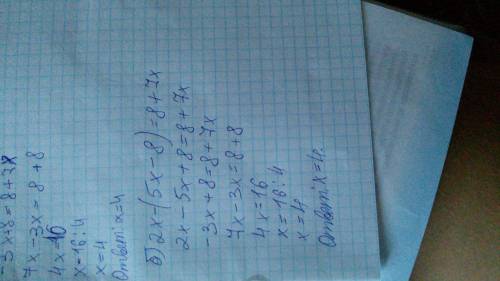 -3x+8=8+7x
7x-3x=8+8
4x=16
x=16:4
x=4
Ответ: x=4
б) 2x-(5x-8)=8+7x
2x-5x+8=8+7x
-3x+8=8+7x
7x-3x=8+8
4x=16
x=16:4
x=4
Ответ: x=4.